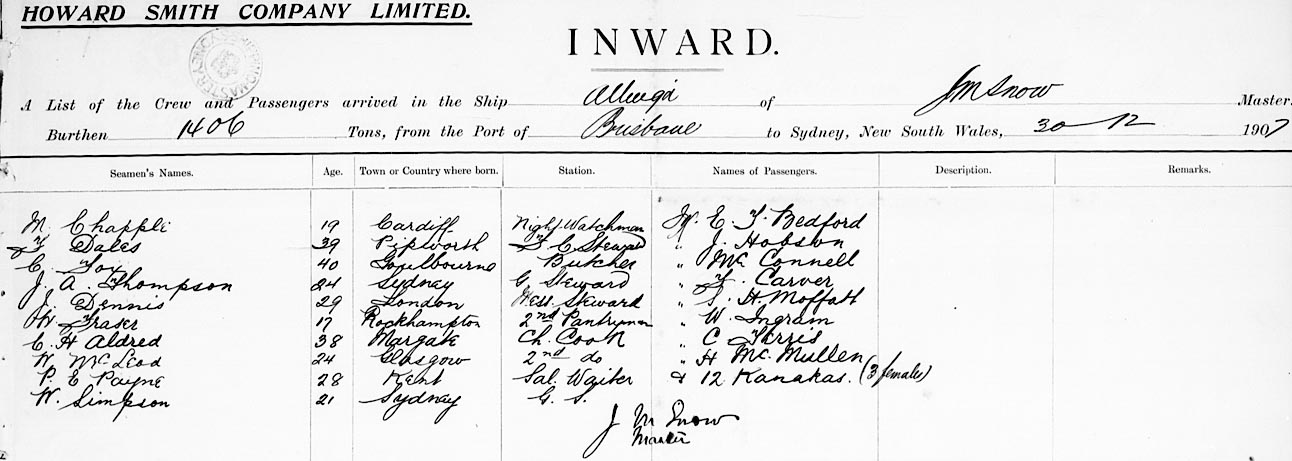 HOWARD SMITH COMPANY LIMITED.
INWARD.
A List of the Crew and Passengers arrived in the Ship Allinga of J M Snow Master.
Burthen 1406 Tons, from the Port of Brisbane to Sydney, New South Wales, 30 12 1907
Seamen's Names. Age. Town or Country where born. Station. Names of Passengers. Description. Remarks.
M. Chapple 19 Cardiff Night Watchman Mr. E. F. Bedford
F Dales 39 Pipworth F C Steward " J. Hobson
C. Fox 40 Goulbourne Butcher " Mc Connell
J. A. Thompson 24 Sydney G. Steward " F. Carver
J. Dennis 29 London Mess. Steward " S. H. Moffatt
W Fraser 17 Rockhampton 2nd Pantryman " W. Ingram
C. H Aldred 38 Margate Ch. Cook " C Ferris
W. McLeod 24 Glasgow 2nd do " H Mc Mullen
P. E Payne 28 Kent Sal. Waiter & 12 Kanakas. (3 females)
W. Simpson 21 Sydney G. S.
J M Snow
Master